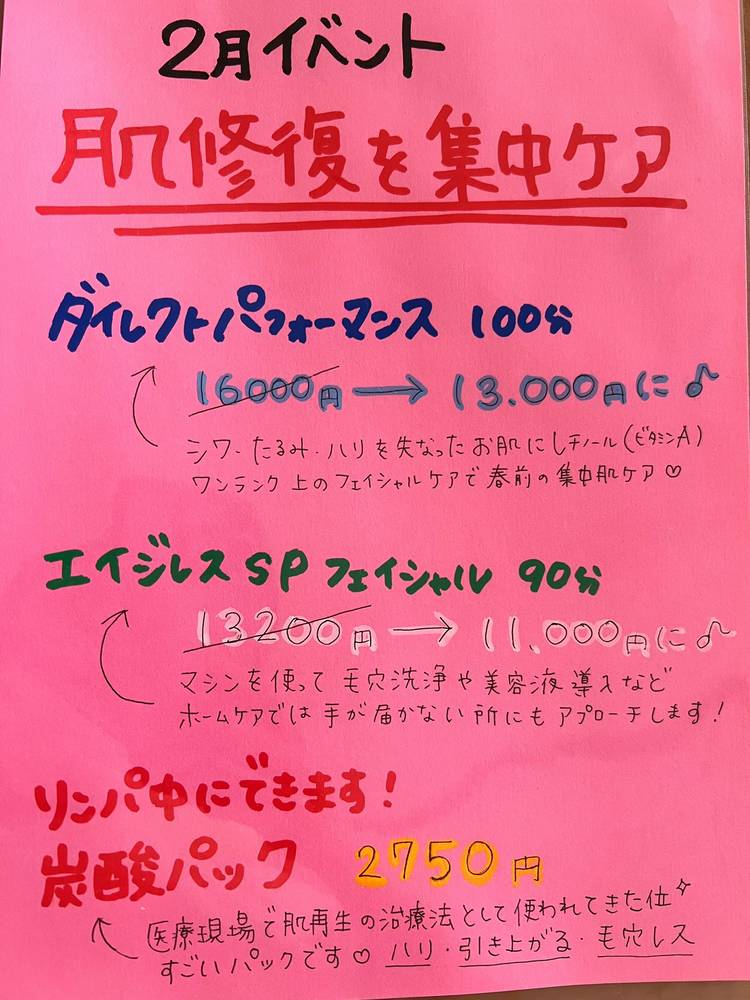 2月イベント
肌修復を集中ケア
ダイレクトパフォーマンス 100分
16000円→13.000円に♪
シワ・たるみ・ハリを失なったお肌にレチノール(ビタミンA)
ワンランク上のフェイシャルケアで春前の集中肌ケア♡
エイジレスSPフェイシャル 90分
13200円→11.000円に♪
マシンを使って毛穴洗浄や美容液導入など
ホームケアでは手が届かない所にもアプローチします!
リンパ中にできます!
炭酸パック 2750円
医療現場で肌再生の治療法として使われてきた位
すごいパックです♡ ハリ・引き上がる・毛穴レス